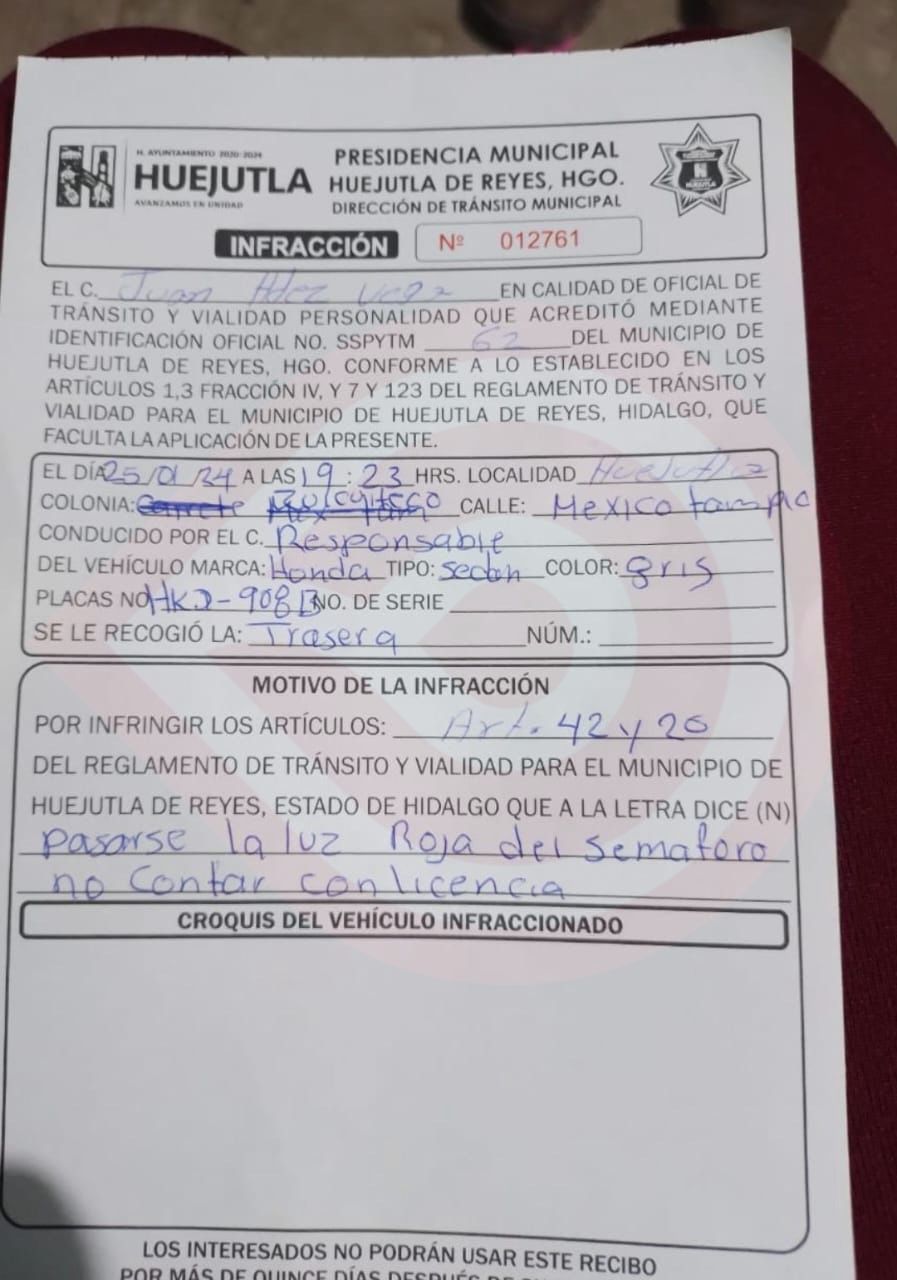 H. AYUNTAMIENTO 2020-2024
HUEJUTLA
AVANZAMOS EN UNIDAD
PRESIDENCIA MUNICIPAL
HUEJUTLA DE REYES, HGO.
DIRECCIÓN DE TRÁNSITO MUNICIPAL
HUEJUTLA
INFRACCIÓN Nº 012761
EL C. Juan Hdez Vega EN CALIDAD DE OFICIAL DE
TRÁNSITO Y VIALIDAD PERSONALIDAD QUE ACREDITÓ MEDIANTE
IDENTIFICACIÓN OFICIAL NO. SSPYTM 62 DEL MUNICIPIO DE
HUEJUTLA DE REYES, HGO. CONFORME A LO ESTABLECIDO EN LOS
ARTÍCULOS 1,3 FRACCIÓN IV, Y 7 Y 123 DEL REGLAMENTO DE TRÁNSITO Y
VIALIDAD PARA EL MUNICIPIO DE HUEJUTLA DE REYES, HIDALGO, QUE
FACULTA LA APLICACIÓN DE LA PRESENTE.
EL DÍA 25/01/24 A LAS 19:23 HRS. LOCALIDAD Huejutla
COLONIA: CALLE: Mexico tampic
CONDUCIDO POR EL C. Responsable
DEL VEHÍCULO MARCA: Honda TIPO: Sedan COLOR: gris
PLACAS NO. NO. DE SERIE
SE LE RECOGIÓ LA: Trasera NÚM.:
MOTIVO DE LA INFRACCIÓN
POR INFRINGIR LOS ARTÍCULOS: Art. 42 y 20
DEL REGLAMENTO DE TRÁNSITO Y VIALIDAD PARA EL MUNICIPIO DE
HUEJUTLA DE REYES, ESTADO DE HIDALGO QUE A LA LETRA DICE (N)
pasarse la luz Roja del Semaforo
no Contar con licencia
CROQUIS DEL VEHÍCULO INFRACCIONADO
LOS INTERESADOS NO PODRÁN USAR ESTE RECIBO
POR MÁS DE QUINCE DÍAS DESPUÉS DE